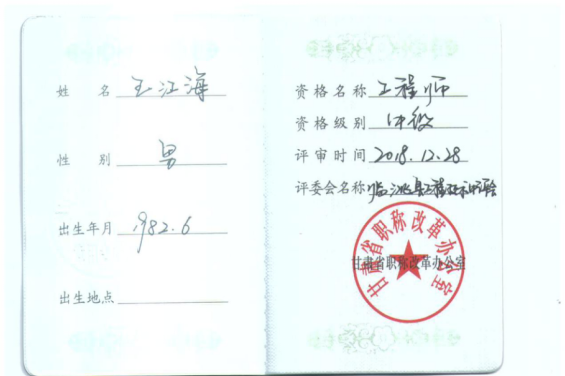 姓 名 王江海
性 别 男
出生年月 1982.6
出生地点
资格名称 工程师
资格级别 中级
评审时间 2018.12.28
评委会名称 临洮县工程
甘肃省职称改革办公室
甘肃省职称改革办公室